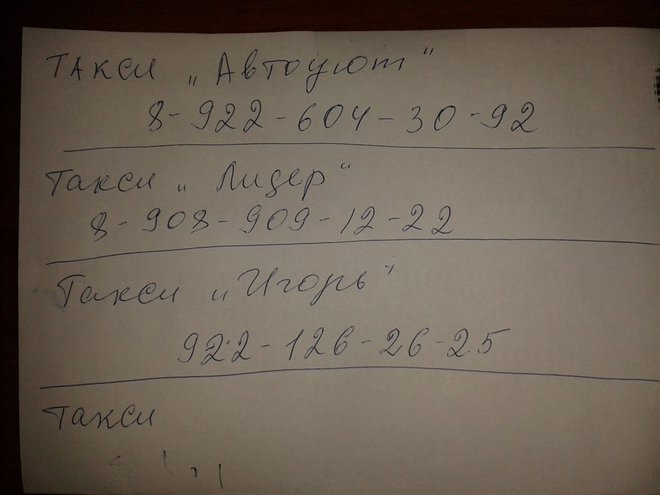 Такси „Автоуют"
8-922-604-30-92
Такси „Лидер"
8-908-909-12-22
Такси „Игорь"
922-126-26-25
Такси